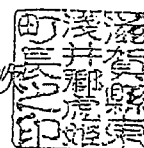 滋賀縣東
淺井郡虎姫
町長之印